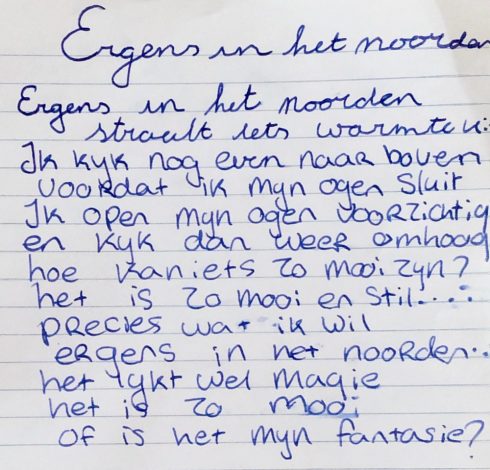 Ergens in het noorden
Ergens in het noorden
straalt iets warmte
Ik kyk nog even naar boven
voordat ik myn ogen sluit
Ik open myn ogen voorzichtig
en kyk dan weer omhoog
hoe kan iets zo mooi zyn?
het is zo mooi en stil....
precies wat ik wil
ergens in het noorden..
het lykt wel magie
het is zo mooi
of is het myn fantasie?